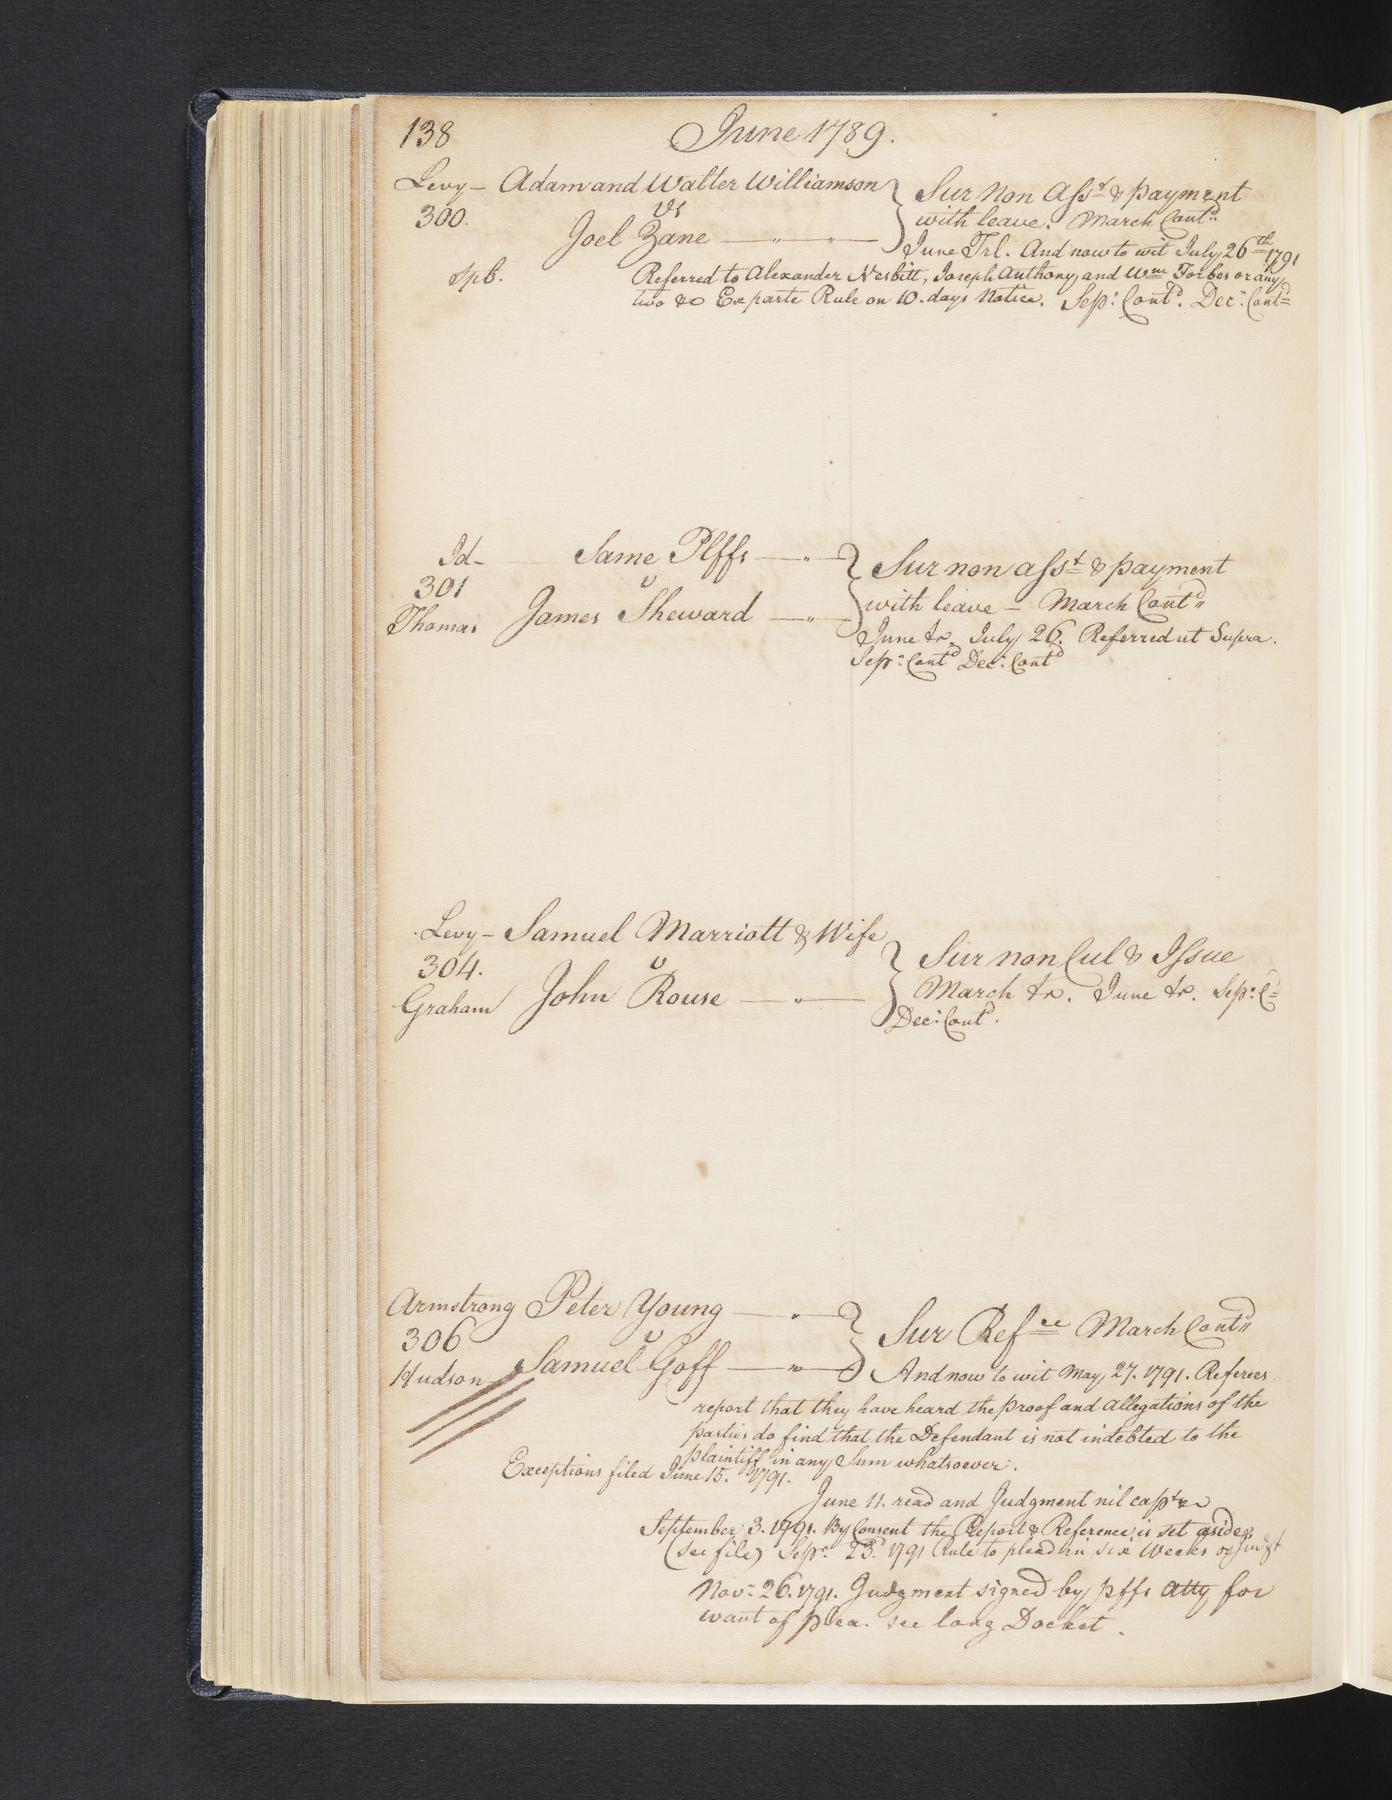 138 June 1789.
Levy — Adam and Walter Williamson } Sur Non Asst & payment
300. vs with leave. March Contd
Joel Zane June Trl. And now to wit July 26th 1791
Spb. Referred to Alexander Nesbitt, Joseph Anthony and Wm Forbes or any
two &c Ex parte Rule on 10. days Notice. Sepr. Contd. Decr. Contd
Id — Same Plffs } Sur non asst & payment
301 v with leave — March Contd
Thomas James Sheward
June tr. July 26. Referred ut Supra.
Sepr. Contd Decr. Contd
Levy — Samuel Marriott & Wife } Sur non Cul & Issue
304. v
Graham John Rouse March tr. June tr. Sepr. C
Decr. Contd.
Armstrong Peter Young } Sur Refce March Contd
306 v
Hudson Samuel Goff And now to wit May 27. 1791. Referees
report that they have heard the proof and allegations of the
parties do find that the Defendant is not indebted to the
plaintiff in any Sum whatsoever.
Exceptions filed June 15. 1791.
June 11. read and Judgment nil capt &c
September 3. 1791. By Consent the Report & Reference is set aside
(see file) Sepr. 23d. 1791 Rule to plead in six Weeks or Judgt
Novr. 26. 1791. Judgment signed by pffs atty for
want of plea. see long Docket.